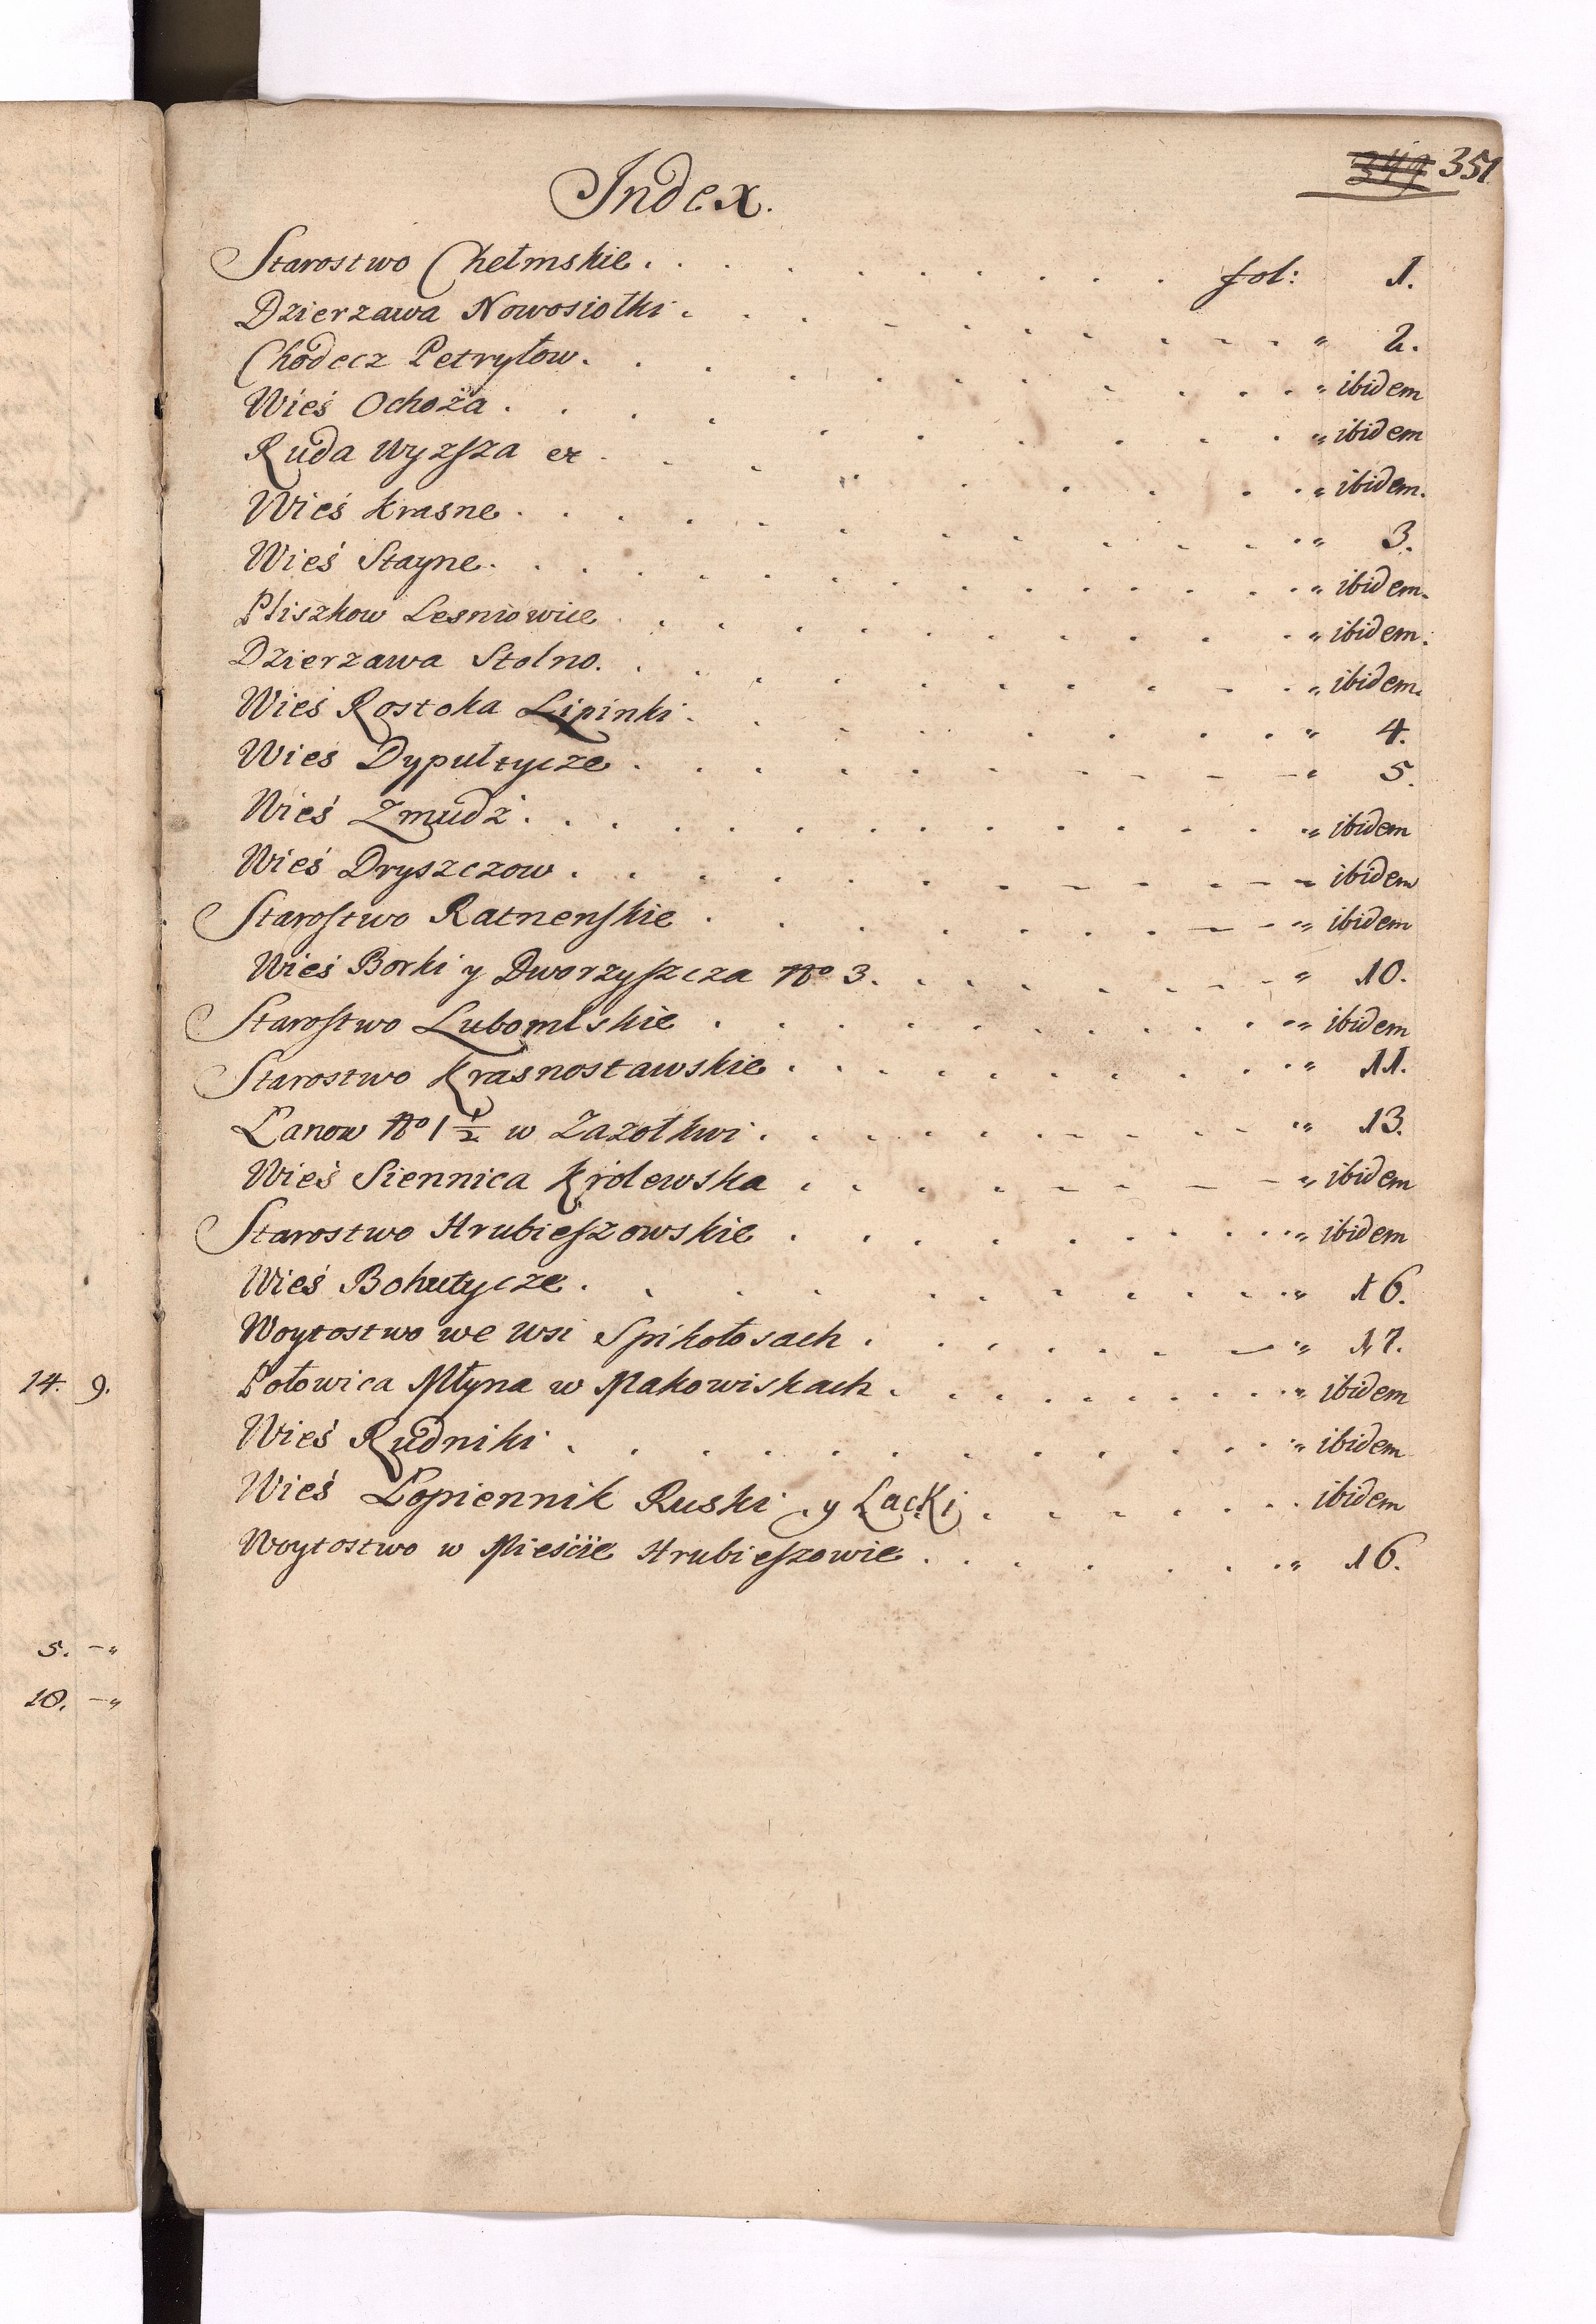 349 351
Index.
Starostwo Chełmskie . . . . . . . . . . fol: 1.
Dzierzawa Nowosiołki . . . . . . . . . . " 2.
Chodecz Petryłow . . . . . . . . . . " ibidem
Wieś Ochoża . . . . . . . . . . " ibidem
Ruda Wyzsza et . . . . . . . . . . " ibidem.
Wieś Krasne . . . . . . . . . . " 3.
Wieś Stayne . . . . . . . . . . " ibidem.
Pliszkow Lesniowice . . . . . . . . . . " ibidem.
Dzierzawa Stolno . . . . . . . . . . " ibidem.
Wieś Rostoka Lipinki . . . . . . . . . . " 4.
Wieś Dypultycze . . . . . . . . . . " 5.
Wieś Zmudź . . . . . . . . . . " ibidem
Wieś Dryszczow . . . . . . . . . . " ibidem
Starostwo Ratnenskie . . . . . . . . . . " ibidem
Wieś Borki y Dworzyszcza No 3 . . . . . . . . " 10.
Starostwo Lubomlskie . . . . . . . . . . " ibidem
Starostwo Krasnostawskie . . . . . . . . . . " 11.
Łanow No 1 1/2 w Zazołkwi . . . . . . . . . . " 13.
Wieś Siennica Królewska . . . . . . . . . . " ibidem
Starostwo Hrubieszowskie . . . . . . . . . . " ibidem
Wieś Bohutycze . . . . . . . . . . " 16.
Woytostwo we wsi Spikołosach . . . . . . . " 17.
Połowica Młyna w Makowiskach . . . . . . . . . " ibidem
Wieś Rudniki . . . . . . . . . . " ibidem
Wieś Łopiennik Ruski y Lacki . . . . . . . ibidem
Woytostwo w Mieście Hrubieszowie . . . . . . . " 16.
14. 9.
5. -"
18. -"